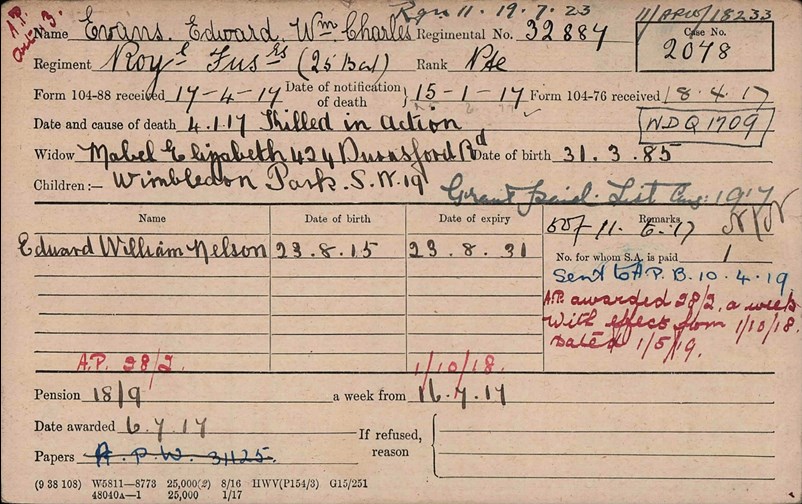 Rgn 11. 19.7.23 11/APW/18233
A.P.
Name Evans. Edward. Wm Charles Regimental No. 32884 Case No.
2078
Regiment Roy l Fus rs (25 Bat) Rank Pte
Form 104-88 received 17-4-17 Date of notification of death } 15-1-17 Form 104-76 received 18.4.17
Date and cause of death 4.1.17 Killed in action WDQ1709
Widow Mabel Elizabeth 424 Durnsford Rd Date of birth 31.3.85
Children:— Wimbledon Park. S.W.19 Grant Paid. List Aug: 1917
Name Date of birth Date of expiry Remarks
11.6.17 N/N
Edward William Nelson 23.8.15 23.8.31 No. for whom S.A. is paid 1
Sent to A.P.B. 10.4.19
A.P. awarded 28/2. a week
with effect from 1/10/18.
Dated 1/5/19.
A.P. 28/2. 1/10/18.
Pension 18/9 a week from 16.7.17
Date awarded 6.7.17
Papers A.P.W. 31125. If refused, reason
(9 38 108) W5811—8773 25,000(2) 8/16 HWV(P154/3) G15/251
48040A—1 25,000 1/17